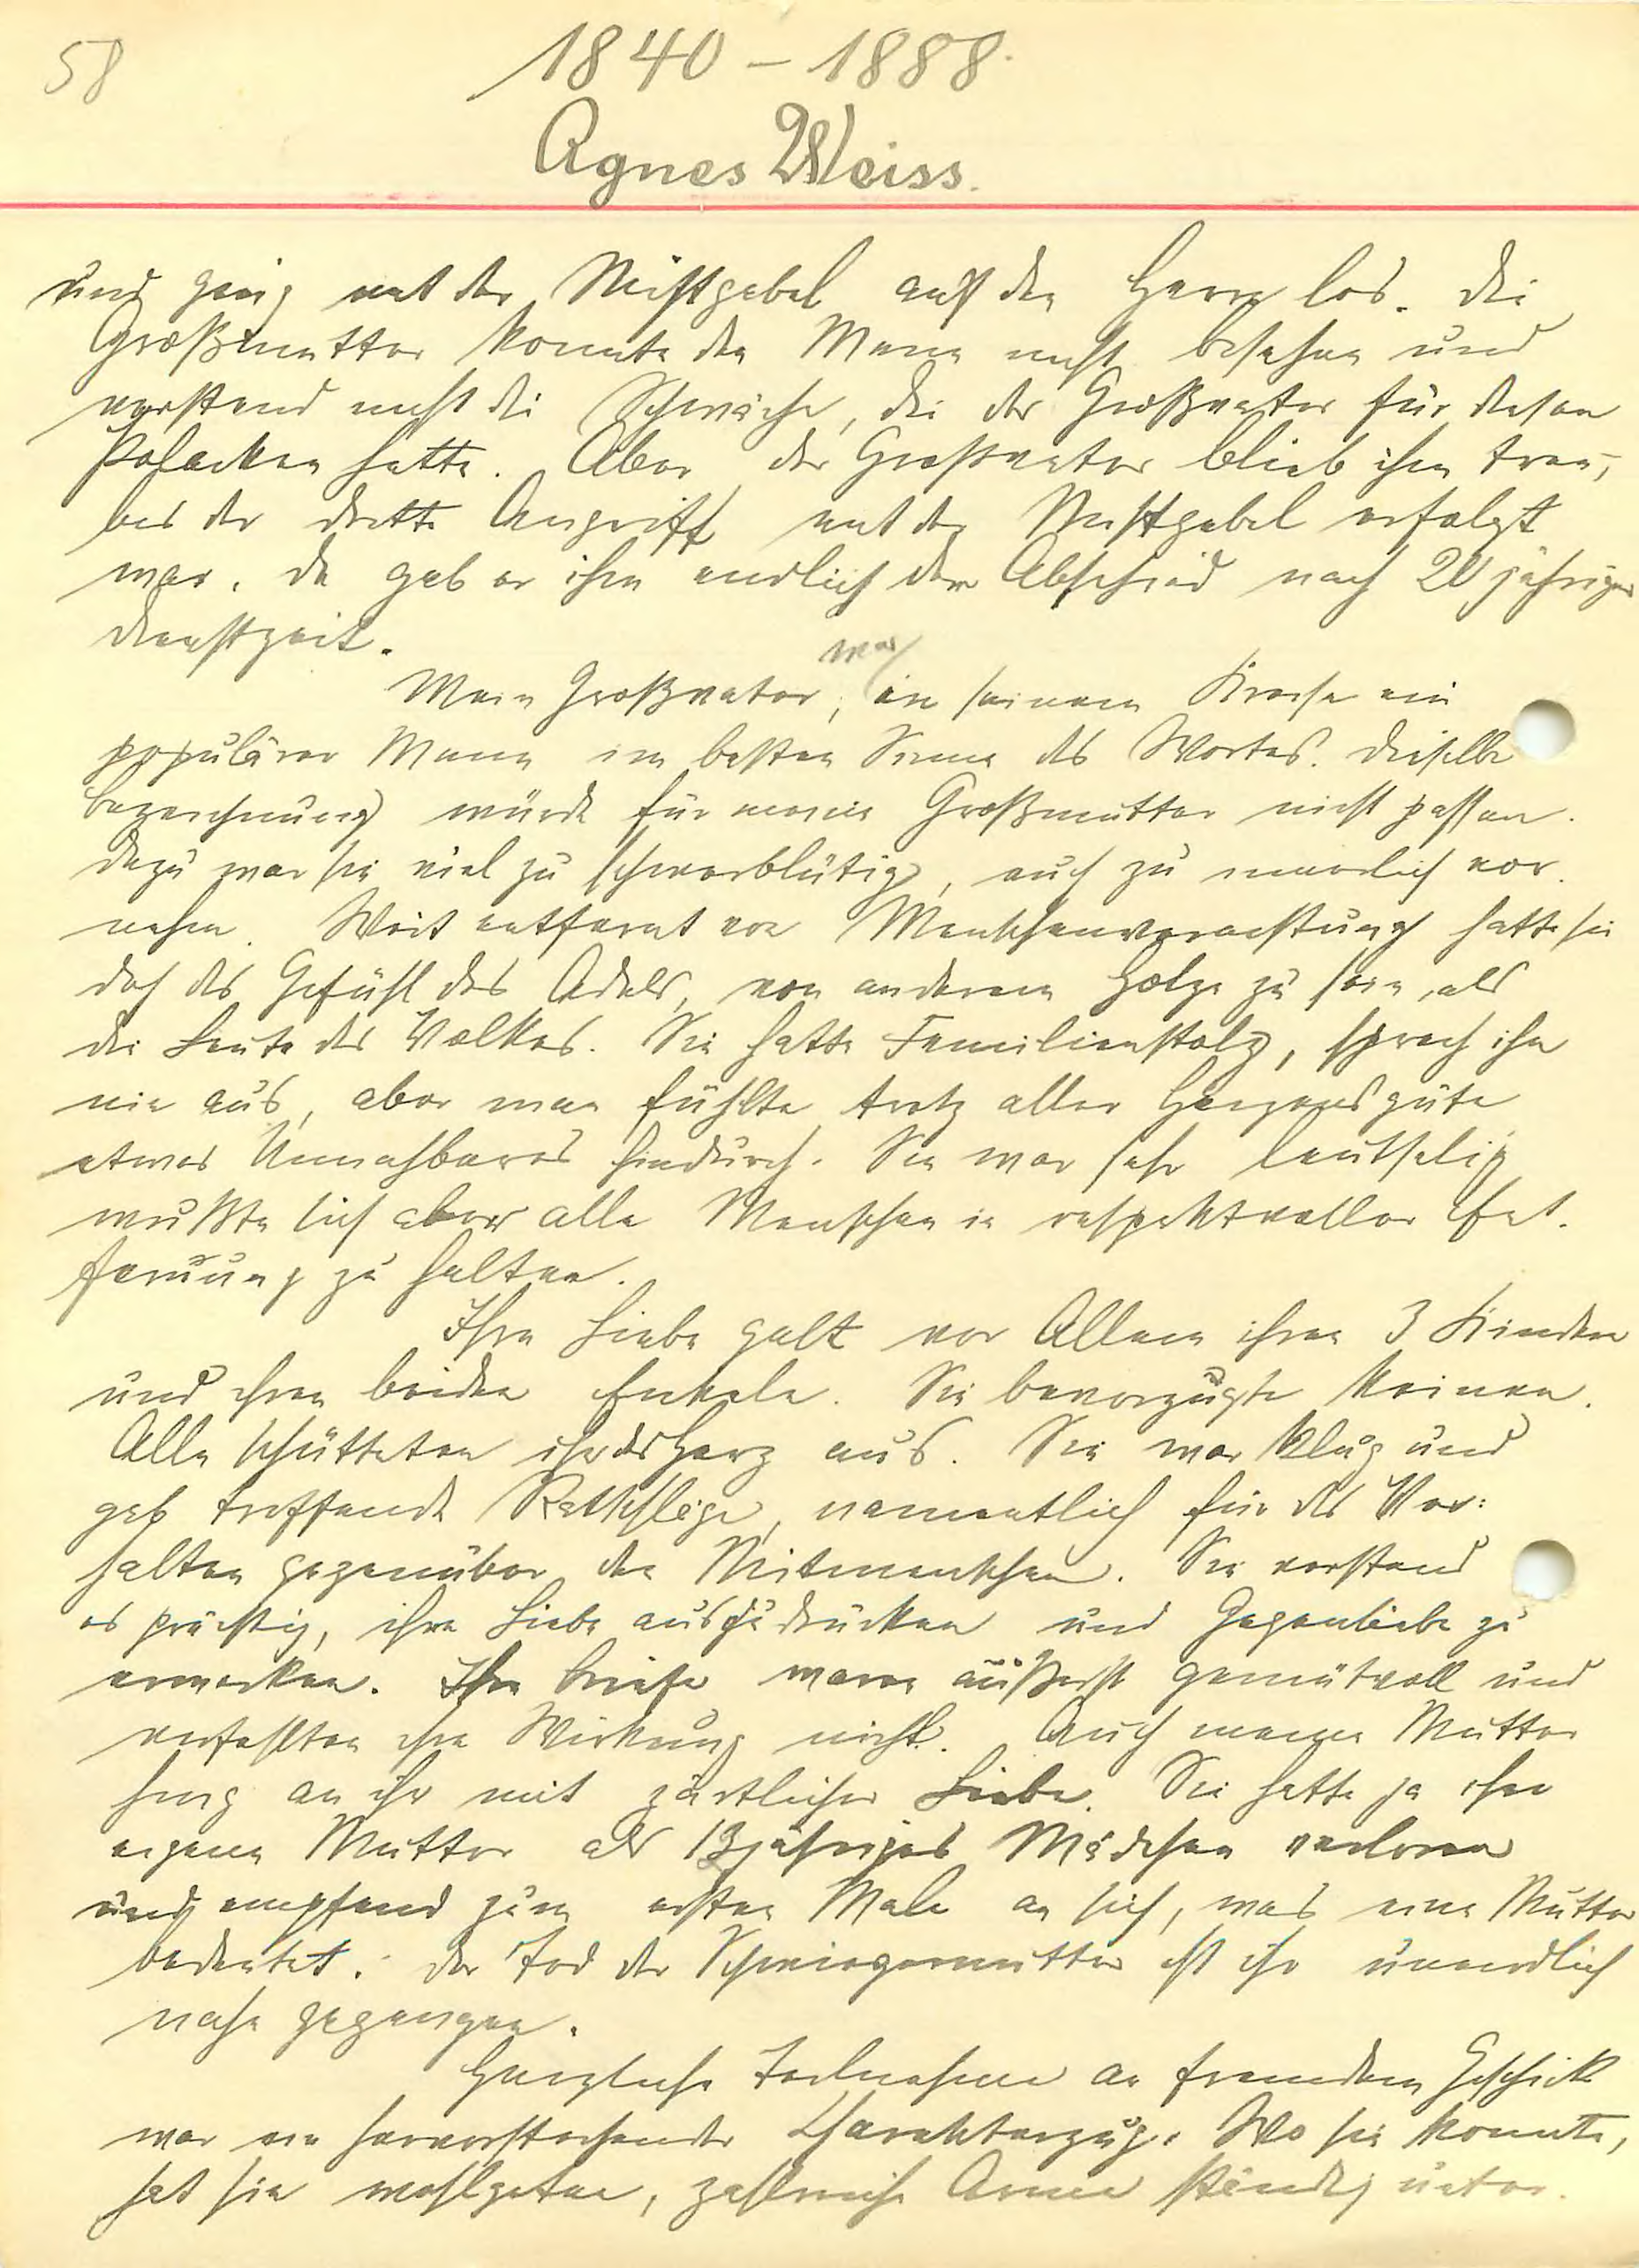 58
1840 – 1888.
Agnes Weiss.
und ging mit der Mistgabel auf den Herrn los. Die
Großmutter konnte den Mann nicht besehen und
verstand nicht die Schwäche, die der Großvater für diesen
Polacken hatte. Aber der Großvater blieb ihm treu,
bis der dritte Angriff mit der Mistgabel erfolgt
war. Da gab er ihm endlich den Abschied nach 20 jähriger
Dienstzeit.
war
Mein Großvater, in seinem Kreise ein
populärer Mann im besten Sinne des Wortes. Dieselbe
Bezeichnung würde für meine Großmutter nicht passen.
Dazu war sie viel zu schwerblütig, auch zu innerlich vor-
nehm. Weit entfernt von Menschenverachtung hatte sie
doch das Gefühl des Adels, von anderem Holze zu sein, als
die Leute des Volkes. Sie hatte Familienstolz, sprach ihn
nie aus, aber man fühlte trotz aller Herzensgüte
etwas Unnahbares hindurch. Sie war sehr leutselig
wußte sich aber alle Menschen in respektvoller Ent-
fernung zu halten.
Ihre Liebe galt vor Allem ihren 3 Kindern
und ihren beiden Enkeln. Sie bevorzugte keinen.
Alle schütteten ihr das Herz aus. Sie war klug und
gab treffende Rathschläge, namentlich für das Ver-
halten gegenüber den Mitmenschen. Sie verstand
es prächtig, ihre Liebe auszudrücken und Gegenliebe zu
erwecken. Ihre Briefe waren äußerst gemütvoll und
verfehlten ihre Wirkung nicht. Auch meine Mutter
hing an ihr mit zärtlicher Liebe. Sie hatte ja ihre
eigene Mutter als 13jähriges Mädchen verloren
und empfand zum ersten Male an sich, was eine Mutter
bedeutet. Der Tod der Schwiegermutter ist ihr unendlich
nahe gegangen.
Herzliche Teilnahme an fremdem Geschick
war ein hervorstechender Charakterzug. Wo sie konnte,
hat sie wohlgetan, zahlreiche Arme ständig unter-